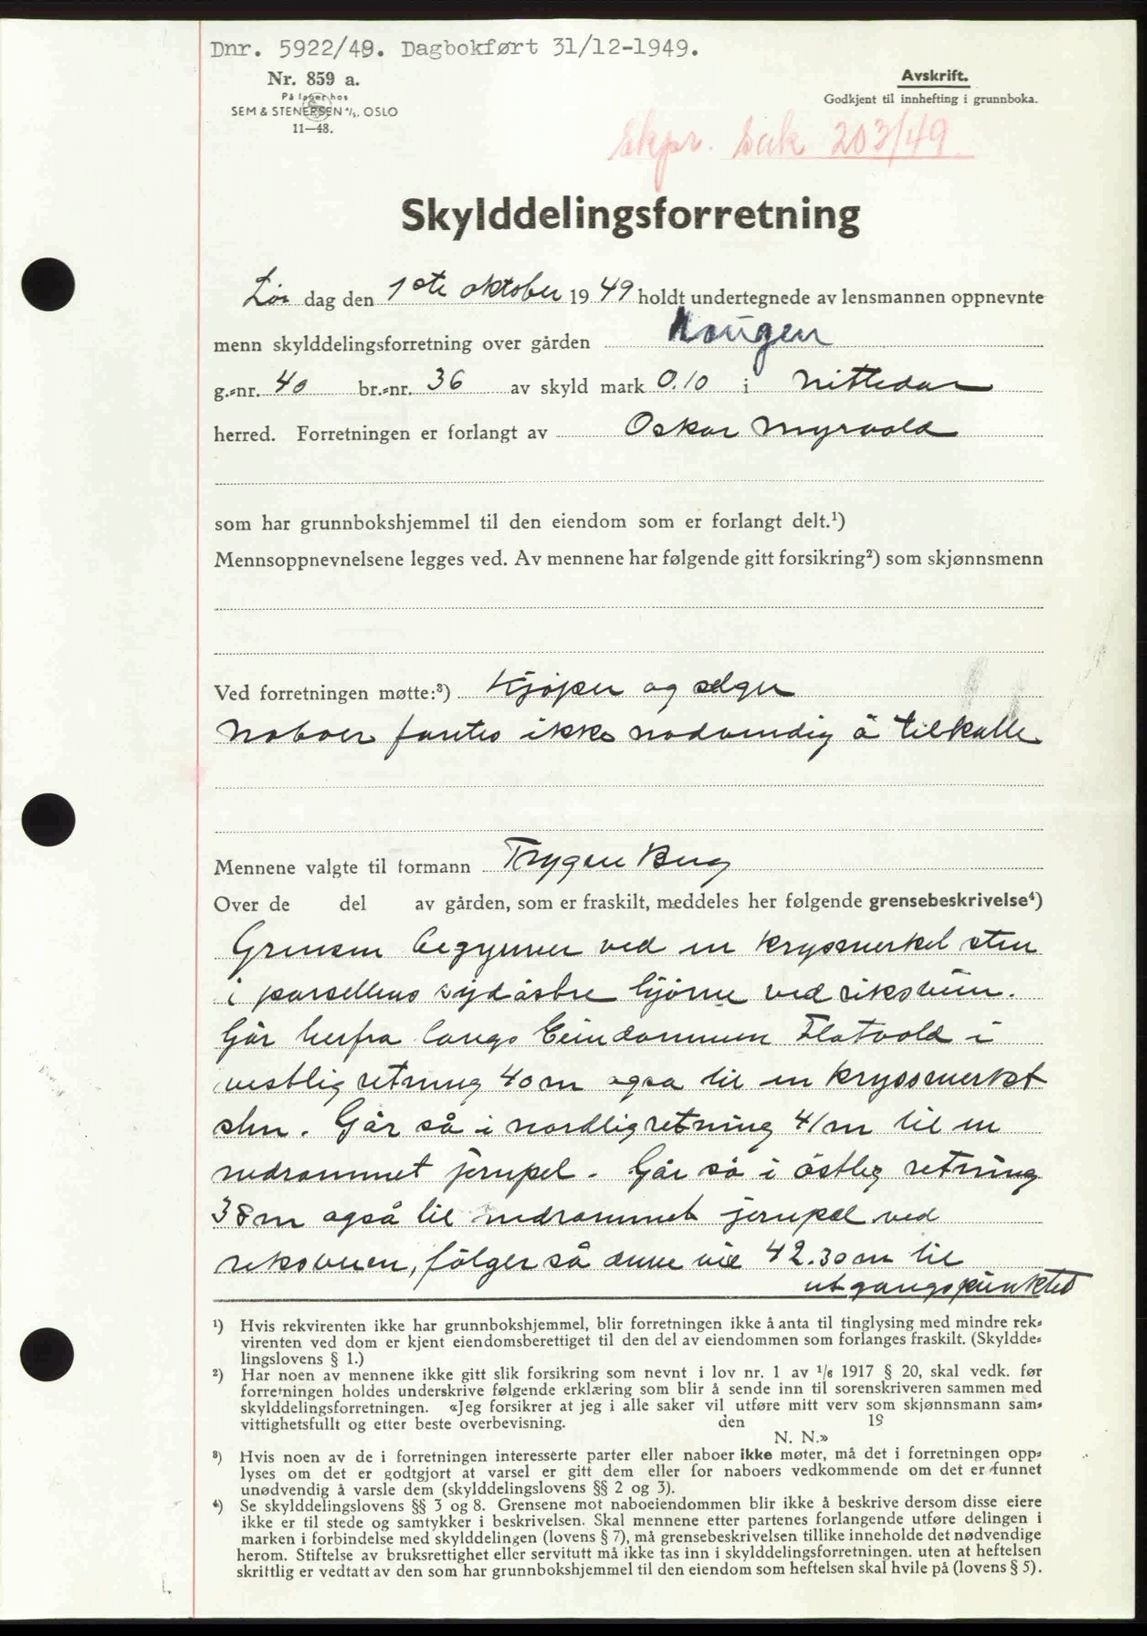 Dnr. 5922/49. Dagbokført 31/12-1949.
Nr. 859 a.
På lager hos
SEM & STENERSEN A/S. OSLO
11—48.
Avskrift.
Godkjent til innhefting i grunnboka.
Ekspr. sak 203/49
Skylddelingsforretning
Lør dag den 1ste oktober 1949 holdt undertegnede av lensmannen oppnevnte
menn skylddelingsforretning over gården Haugen
g.-nr. 40 br.-nr. 36 av skyld mark 0.10 i Nittedal
herred. Forretningen er forlangt av Oskar Myrvold
som har grunnbokshjemmel til den eiendom som er forlangt delt.¹)
Mennsoppnevnelsene legges ved. Av mennene har følgende gitt forsikring²) som skjønnsmenn
Ved forretningen møtte:³) Kjøper og selger
Naboer fantes ikke nødvendig å tilkalle
Mennene valgte til formann Trygve Berg
Over de del av gården, som er fraskilt, meddeles her følgende grensebeskrivelse⁴)
Grensen begynner ved en kryssmerket sten
i parsellens sydøstre hjørne ved riksveien.
Går herfra langs Eiendommen Flatvold i
vestlig retning 40 m også til en kryssmerket
sten. Går så i nordlig retning 41 m til en
nedrammet jernpel. Går så i östlig retning
38 m også til nedrammet jernpæl ved
riksveien, fölger så denne vie 42.30 m til
utgangspunktet
¹) Hvis rekvirenten ikke har grunnbokshjemmel, blir forretningen ikke å anta til tinglysing med mindre rek-
virenten ved dom er kjent eiendomsberettiget til den del av eiendommen som forlanges fraskilt. (Skyldde-
lingslovens § 1.)
²) Har noen av mennene ikke gitt slik forsikring som nevnt i lov nr. 1 av 1/6 1917 § 20, skal vedk. før
forretningen holdes underskrive følgende erklæring som blir å sende inn til sorenskriveren sammen med
skylddelingsforretningen. «Jeg forsikrer at jeg i alle saker vil utføre mitt verv som skjønnsmann sam-
vittighetsfullt og etter beste overbevisning. den 19
N. N.»
³) Hvis noen av de i forretningen interesserte parter eller naboer ikke møter, må det i forretningen opp-
lyses om det er godtgjort at varsel er gitt dem eller for naboers vedkommende om det er funnet
unødvendig å varsle dem (skylddelingslovens §§ 2 og 3).
⁴) Se skylddelingslovens §§ 3 og 8. Grensene mot naboeiendommen blir ikke å beskrive dersom disse eiere
ikke er til stede og samtykker i beskrivelsen. Skal mennene etter partenes forlangende utføre delingen i
marken i forbindelse med skylddelingen (lovens § 7), må grensebeskrivelsen tillike inneholde det nødvendige
herom. Stiftelse av bruksrettighet eller servitutt må ikke tas inn i skylddelingsforretningen. uten at heftelsen
skriftlig er vedtatt av den som har grunnbokshjemmel til den eiendom som heftelsen skal hvile på (lovens § 5).